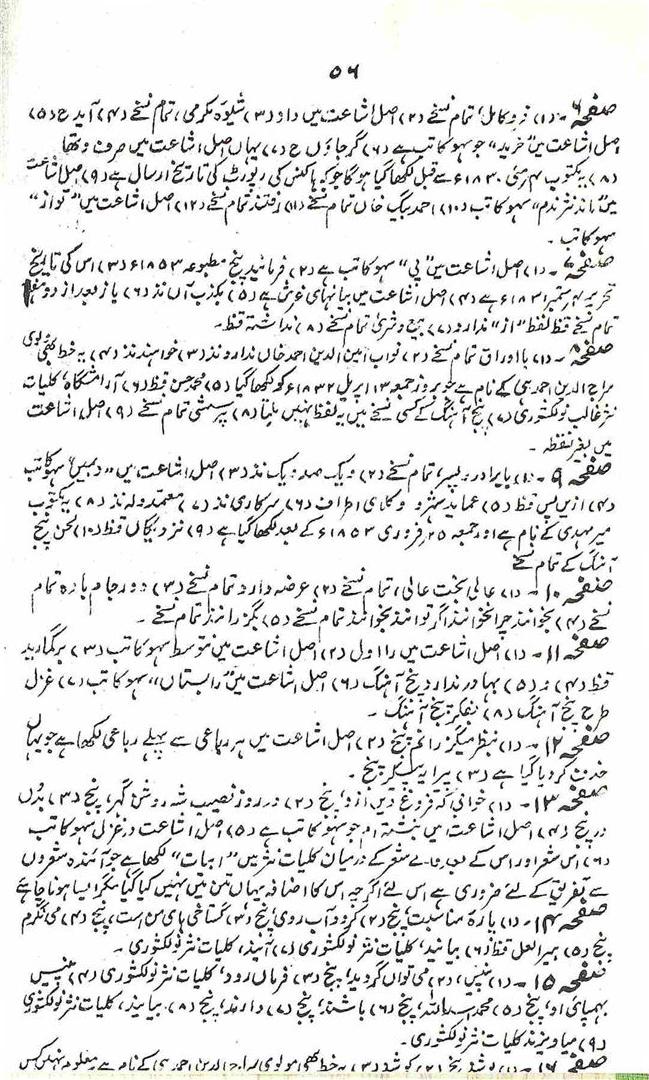 ۵۶
صفحہ ۶۔ (۱) فروکامل، تمام نسخے (۲) اصل اشاعت میں داو (۳) شیوۂ مکرمی، تمام نسخے (۴) آید ع (۵)
اصل اشاعت میں "خرید" جو سہو کاتب ہے (۶) گر جاؤں ع (۷) یہاں اصل اشاعت میں صرف و تھا
(۸) یہ مکتوب ۴ مئی ۱۸۳۰ء سے قبل لکھا گیا ہوگا جو کہ ہاکنس کی رپورٹ کی تاریخ ارسال ہے (۹) اصل اشاعت
میں "ماند نثر ندم" سہو کاتب (۱۰) احمد بیگ خاں تمام نسخے (۱۱) رفتند تمام نسخے (۱۲) اصل اشاعت میں "تواز"
سہو کاتب۔
صفحہ ۷۔ (۱) اصل اشاعت میں "پی" سہو کاتب ہے (۲) فرمائید پنج مطبوعہ ۱۸۵۳ء (۳) اس کی تاریخ
تحریر ۴ ستمبر ۱۸۳۱ء ہے (۴) اصل اشاعت میں بنا نہای غوش ہے (۵) بکذب آں نذ (۶) باز بعد از دو
تمام نسخے قط لفظ "از" ندارد (۷) بیع و شریٰ تمام نسخے (۸) نداشتہ قط۔
صفحہ ۸۔ (۱) با اوراق تمام نسخے (۲) نواب امین الدین احمد خاں ندارد نذ (۳) خواہند نذ (۴) یہ خط بھی مولوی
سراج الدین احمد ہی کے نام ہے جو بروز جمعہ ۱۳ اپریل ۱۸۳۲ء کو لکھا گیا (۵) محمد حسن قط (۶) آرامشگاہ، کلیات
نثر غالب نولکشوری (۷) پنج آہنگ کے کسی نسخے میں یہ لفظ نہیں ملتا (۸) پرسشی تمام نسخے (۹) اصل اشاعت
میں بغیر نقطہ۔
صفحہ ۹۔ (۱) بابرادر و پسر، تمام نسخے (۲) و یک صد و یک نذ (۳) اصل اشاعت میں "دہمیں" سہو کاتب
(۴) ازیں پس قط (۵) عمائد شہر و وکلای اطراف (۶) سرکاری نذ (۷) معتمد ولہ نذ (۸) یہ مکتوب
میر مہدی کے نام ہے اور جمعہ ۲۵ فروری ۱۸۵۳ء کے بعد لکھا گیا ہے (۹) نزدیکاں قط (۱۰) لحن پنج
آہنگ کے تمام نسخے
صفحہ ۱۰۔ (۱) عالی بخت عالی، تمام نسخے (۲) عرضہ دارد تمام نسخے (۳) دور جام بادہ تمام
نسخے (۴) بخوانند چرا نخوانند اگر توانند بخوانند تمام نسخے (۵) بگزرانند تمام نسخے۔
صفحہ ۱۱۔ (۱) اصل اشاعت میں را اول (۲) اصل اشاعت میں توسط سہو کاتب (۳) برگمارید
قط (۴) و (۵) بہادر ندارد پنج آہنگ (۶) اصل اشاعت میں "رابستاں" سہو کاتب (۷) غزل
طرح پنج آہنگ (۸) بفکر پنج آہنگ۔
صفحہ ۱۲۔ (۱) بنظر میگزرانم پنج (۲) اصل اشاعت میں ہر رباعی سے پہلے رباعی لکھا ہے جو یہاں
حذف کر دیا گیا ہے (۳) پیرایہ پیکر پنج۔
صفحہ ۱۳۔ (۱) خوابی کہ فروغ دیں ازو، پنج (۲) در روز نصیب شہ روشن گہر، پنج (۳) بدُں
در پنج (۴) اصل اشاعت میں بشتہ ام جو سہو کاتب ہے (۵) اصل اشاعت در غزلی سہو کاتب
(۶) اس شعر اور اس کے بعد والے شعر کے درمیان کلیات نثر میں "ابیات" لکھا ہے جو آئندہ شعروں
سے تفریق کے لئے ضروری ہے اس لئے اگرچہ اس کا اضافہ یہاں متن میں نہیں کیا گیا مگر ایسا ہونا چاہئے
صفحہ ۱۴۔ (۱) پارۂ مناسبت، پنج (۲) گرد و آب روی، پنج (۳) گستاخی ہای من است، پنج (۴) می نگرم
پنج (۵) ہیرا لعل قط (۶) بیابند، کلیات نثر نولکشوری (۷) آیند، کلیات نثر نولکشوری۔
صفحہ ۱۵۔ (۱) بہنیس، (۲) می تواں گروید، پنج (۳) فرماں رود، کلیات نثر نولکشوری (۴) بہنیس
بہمپائی او، پنج (۵) محمد اسد اللہ، پنج (۶) باشند، پنج (۷) دارند، پنج (۸) بیابند، کلیات نثر نولکشوری
(۹) میاویزند کلیات نثر نولکشوری۔
صفحہ ۱۶۔ (۱) پنج (۲) کوشد (۳) یہ خط بھی مولوی سراج الدین احمد ہی کے نام ہے معلوم نہیں کس